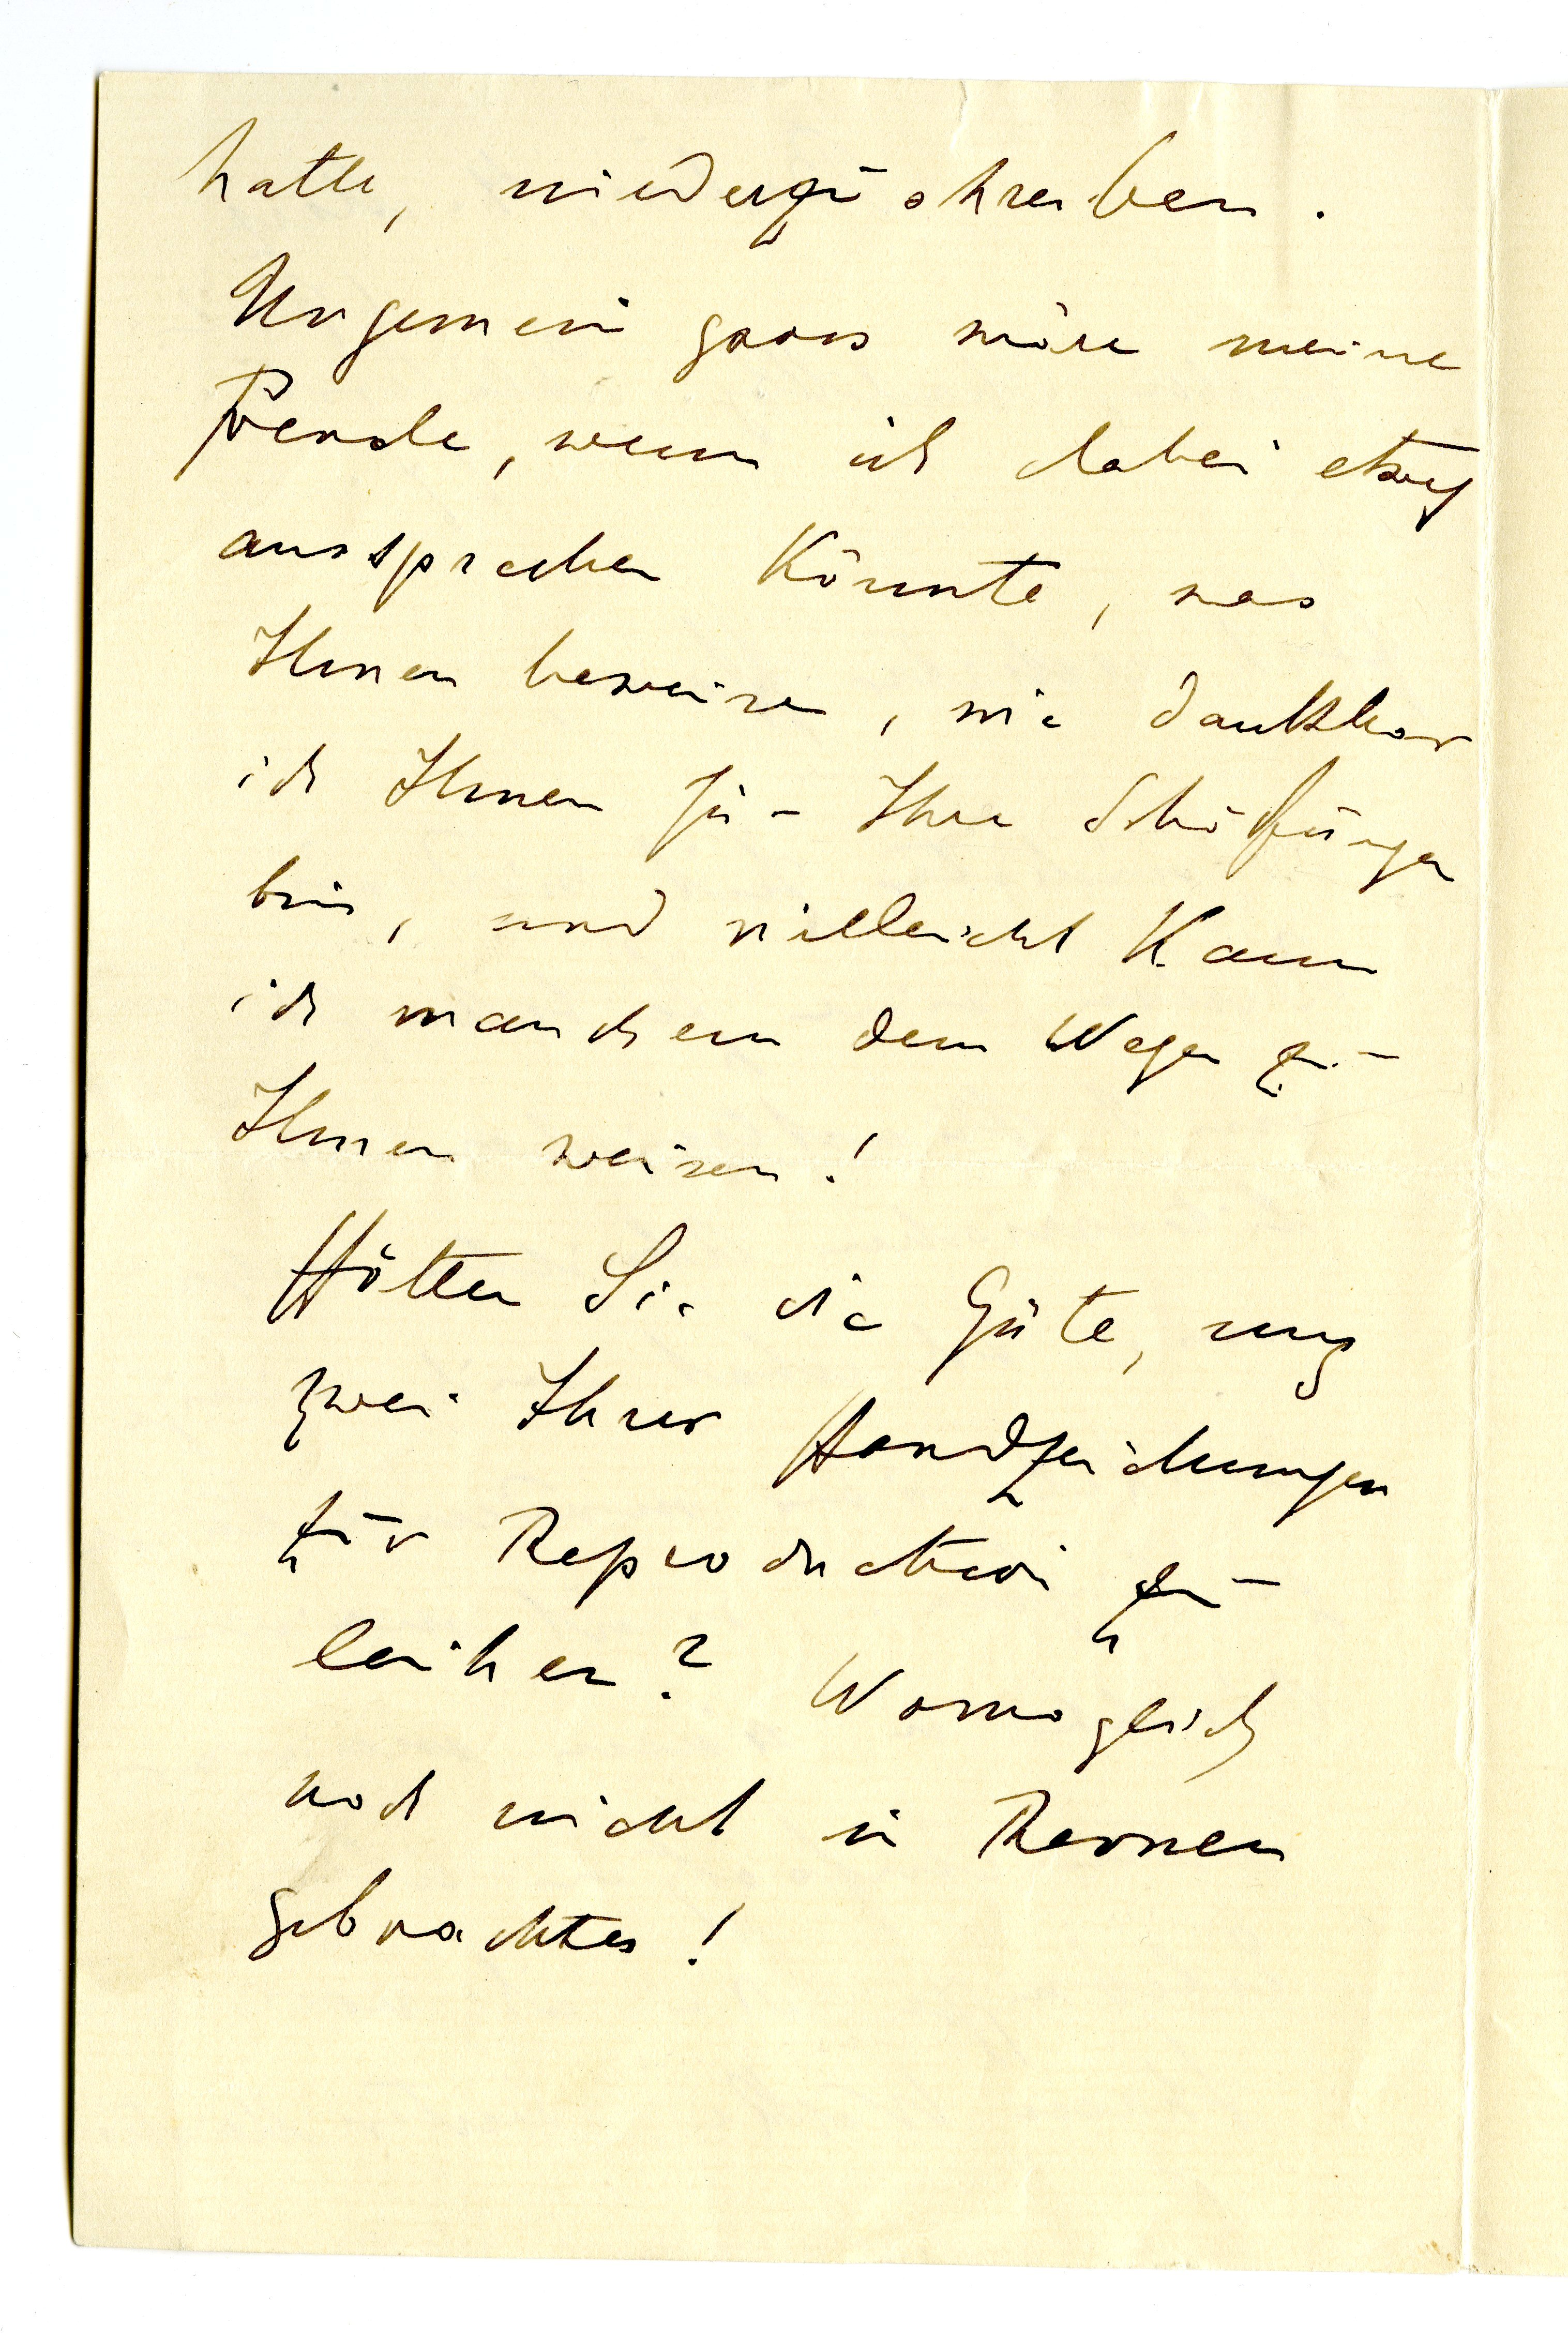 hatte, niederzuschreiben.
Ungemein gross wäre meine
Freude, wenn ich dabei etwas
aussprechen könnte, was
Ihnen beweise, wie dankbar
ich Ihnen für Ihre Schöpfungen
bin, und vielleicht kann
ich manchem den Wegen zu
Ihnen weisen!
Hätten Sie die Güte, uns
zwei Ihrer Handzeichnungen
zur Reproduction zu
leihen? Womöglich
noch nicht in Revuen
gebrachtes!